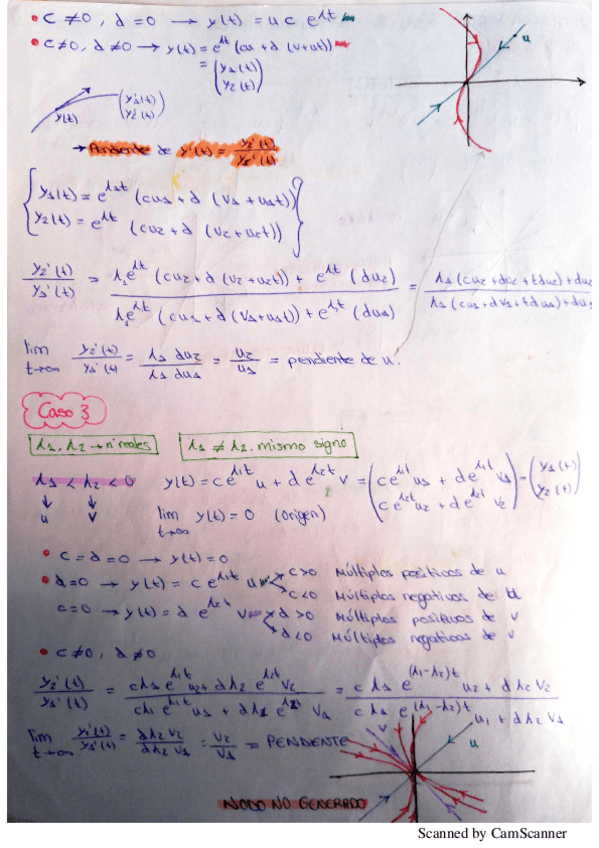 • C ≠ 0, d = 0 → y(t) = u c e^{λt}
• c≠0, d ≠0 → y(t) = e^{λt} (cu + d (v+ut))
= (y₁(t) y₂(t))
u
y(t)
(y₁'(t) y₂'(t))
→ Pendiente de y'(t) = y₂'(t) / y₁'(t)
y₁(t) = e^{λt} (cu₁ + d (v₁ + u₁t))
y₂(t) = e^{λt} (cu₂ + d (v₂ + u₂t))
y₂'(t) / y₁'(t) = λ₁e^{λt} (cu₂ + d (v₂ + u₂t)) + e^{λt} (du₂) / λ₁e^{λt} (cu₁ + d (v₁ + u₁t)) + e^{λt} (du₁) = λ₁ (cu₂ + dv₂ + tdu₂) + du₂ / λ₁ (cu₁ + dv₁ + tdu₁) + du₁
lím t→∞ y₂'(t) / y₁'(t) = λ₁ du₂ / λ₁ du₁ = u₂ / u₁ = pendiente de u.
Caso 3
λ₁, λ₂ → nº reales
λ₁ ≠ λ₂. mismo signo
λ₁ < λ₂ < 0
y(t) = c e^{λ₁t} u + d e^{λ₂t} v = (c e^{λ₁t} u₁ + d e^{λ₂t} v₁, c e^{λ₂t} u₂ + d e^{λ₂t} v₂) = (y₁(t) y₂(t))
↓ ↓
u v
lím t→∞ y(t) = 0 (origen)
• c = d = 0 → y(t) = 0
• d=0 → y(t) = c e^{λ₁t} u
c>0 Múltiplos positivos de u
c<0 Múltiplos negativos de u
c=0 → y(t) = d e^{λ₂t} v
d>0 Múltiplos positivos de v
d<0 Múltiplos negativos de v
• c≠0, d≠0
y₂'(t) / y₁'(t) = cλ₁ e^{λ₁t} u₂ + dλ₂ e^{λ₂t} v₂ / cλ₁ e^{λ₁t} u₁ + dλ₂ e^{λ₂t} v₁ = c λ₁ e^{(λ₁-λ₂)t} u₂ + dλ₂ v₂ / c λ₁ e^{(λ₁-λ₂)t} u₁ + dλ₂ v₁
lím t→∞ y₂'(t) / y₁'(t) = dλ₂ v₂ / dλ₂ v₁ = v₂ / v₁ = PENDIENTE
v
u
NODO NO GENERADO
Scanned by CamScanner